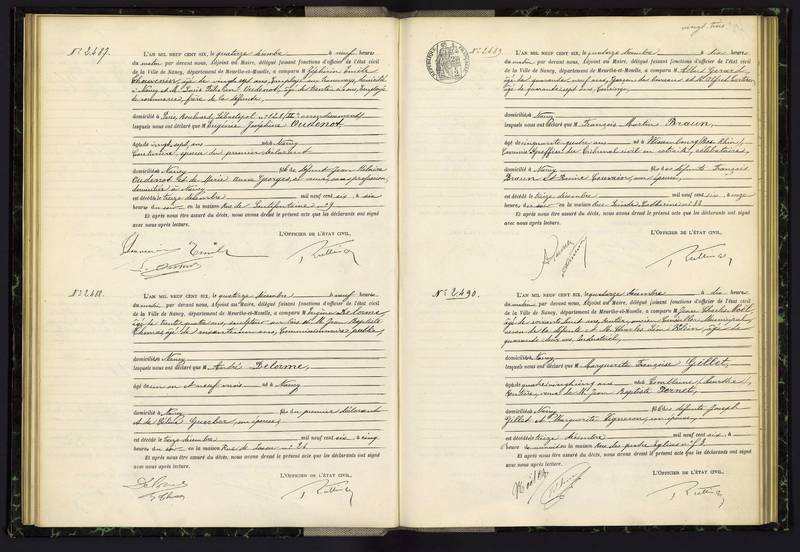 N° 2.487.
L'AN MIL NEUF CENT SIX, le quatorze décembre à neuf heures
du matin par devant nous, Adjoint au Maire, délégué faisant fonctions d'officier de l'état civil
de la Ville de Nancy, département de Meurthe-et-Moselle, a comparu M
Thouvenin âgé de vingt sept ans, employé aux tramways, domicilié
à Nancy et M. Louis Oudenot, âgé de trente ans, employé
de commerce, frère de la défunte,
domicilié à Paris, Boulevard Sébastopol
lesquels nous ont déclaré que M Eugénie Joséphine Oudenot,
âgée de vingt sept ans née à Nancy
Couturière, épouse du premier déclarant
domiciliée à Nancy fille de défunt Jean
Oudenot et de Marie Anne Georges, sans profession,
domiciliée à Nancy
est décédée le treize décembre mil neuf cent six à six
heures du soir en la maison Rue de n° 9
Et après nous être assuré du décès, nous avons dressé le présent acte que les déclarants ont signé
avec nous après lecture.
L'OFFICIER DE L'ÉTAT CIVIL,
N° 2.488.
L'AN MIL NEUF CENT SIX, le quatorze décembre à neuf heures
du matin par devant nous, Adjoint au Maire, délégué faisant fonctions d'officier de l'état civil
de la Ville de Nancy, département de Meurthe-et-Moselle, a comparu M Eugène Delorme
âgé de trente quatre ans, sculpteur sur bois et M. Jean Baptiste
Thomas âgé de soixante un ans, Commissionnaire public,
domiciliés à Nancy
lesquels nous ont déclaré que M André Delorme,
âgé de un an et neuf mois né à Nancy
domicilié à Nancy fils du premier déclarant
et de Guerber, son épouse,
est décédé le treize décembre mil neuf cent six à cinq
heures du soir en la maison Rue de n° 26
Et après nous être assuré du décès, nous avons dressé le présent acte que les déclarants ont signé
avec nous après lecture.
L'OFFICIER DE L'ÉTAT CIVIL,
Delorme
vingt trois
N° 2.489.
RÉPUBLIQUE FRANÇAISE
L'AN MIL NEUF CENT SIX, le quatorze décembre à dix heures
du matin par devant nous, Adjoint au Maire, délégué faisant fonctions d'officier de l'état civil
de la Ville de Nancy, département de Meurthe-et-Moselle, a comparu M Albert Gérard
âgé de quarante neuf ans, garçon de bureau et M. Alfred
âgé de quarante sept ans, Concierge,
domiciliés à Nancy
lesquels nous ont déclaré que M François Martin Braun,
âgé de cinquante quatre ans né à Wissembourg (Bas-Rhin),
Commis Greffier du Tribunal civil en retraite, célibataire,
domicilié à Nancy fils de défunts François
Braun et son épouse,
est décédé le treize décembre mil neuf cent six à onze
heures du soir en la maison Rue Sainte Catherine n°
Et après nous être assuré du décès, nous avons dressé le présent acte que les déclarants ont signé
avec nous après lecture.
L'OFFICIER DE L'ÉTAT CIVIL,
N° 2.490.
L'AN MIL NEUF CENT SIX, le quatorze décembre à dix heures
du matin par devant nous, Adjoint au Maire, délégué faisant fonctions d'officier de l'état civil
de la Ville de Nancy, département de Meurthe-et-Moselle, a comparu M Jean Charles Noël
âgé de soixante huit ans, rentier, ancien Conseiller Municipal
neveu de la défunte et M. Charles Léon âgé de
quarante deux ans, Industriel,
domiciliés à Nancy
lesquels nous ont déclaré que M Marguerite Françoise Gillet,
âgée de quatre vingt cinq ans née à Tomblaine (Meurthe),
Rentière, veuve de M. Jean Baptiste
domiciliée à Nancy fille de défunts Joseph
Gillet et Marguerite Vigneron, son épouse,
est décédée le treize décembre mil neuf cent six à
heures en la maison Rue des quatre églises n°
Et après nous être assuré du décès, nous avons dressé le présent acte que les déclarants ont signé
avec nous après lecture.
L'OFFICIER DE L'ÉTAT CIVIL,
Noël